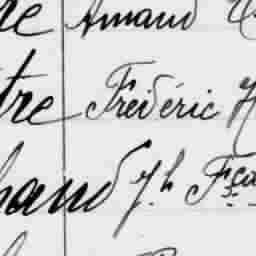 re Amand
tre Frédéric H
hand J.h Fçs